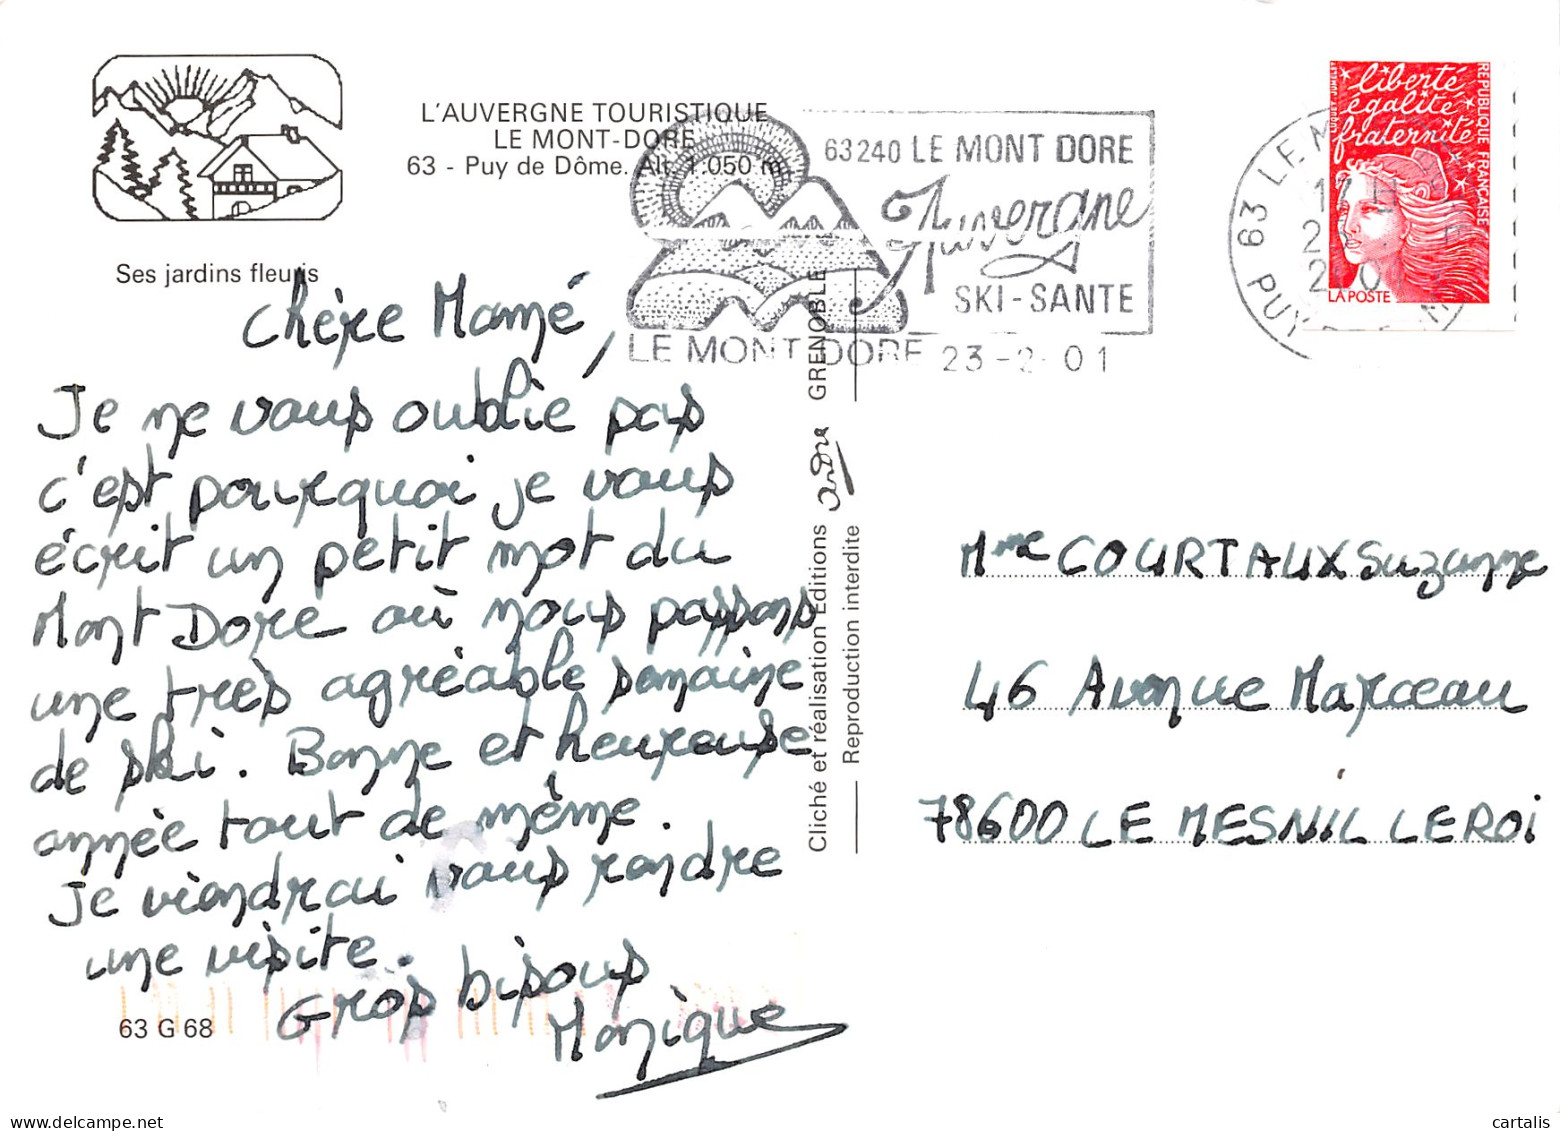 L'AUVERGNE TOURISTIQUE
LE MONT-DORE
63 - Puy de Dôme. Alt. 1.050 m
Ses jardins fleuris
63240 LE MONT DORE
Auvergne
SKI-SANTE
LE MONT DORE 23-2-01
63 LE M
17 H
PUY
liberté
égalité
fraternité
REPUBLIQUE FRANÇAISE
LA POSTE
Chère Mamé,
Je ne vous oublie pas
c'est pourquoi je vous
écrit un petit mot du
Mont Dore où nous passons
une très agréable semaine
de ski. Bonne et heureuse
année tout de même.
Je viendrai vous rendre
une visite.
Gros bisous
Monique
63 G 68
Cliché et réalisation Editions André GRENOBLE
Reproduction interdite
Mme COURTAUX Suzanne
46 Avenue Marceau
78600 LE MESNIL LE ROI
cartalis
www.delcampe.net